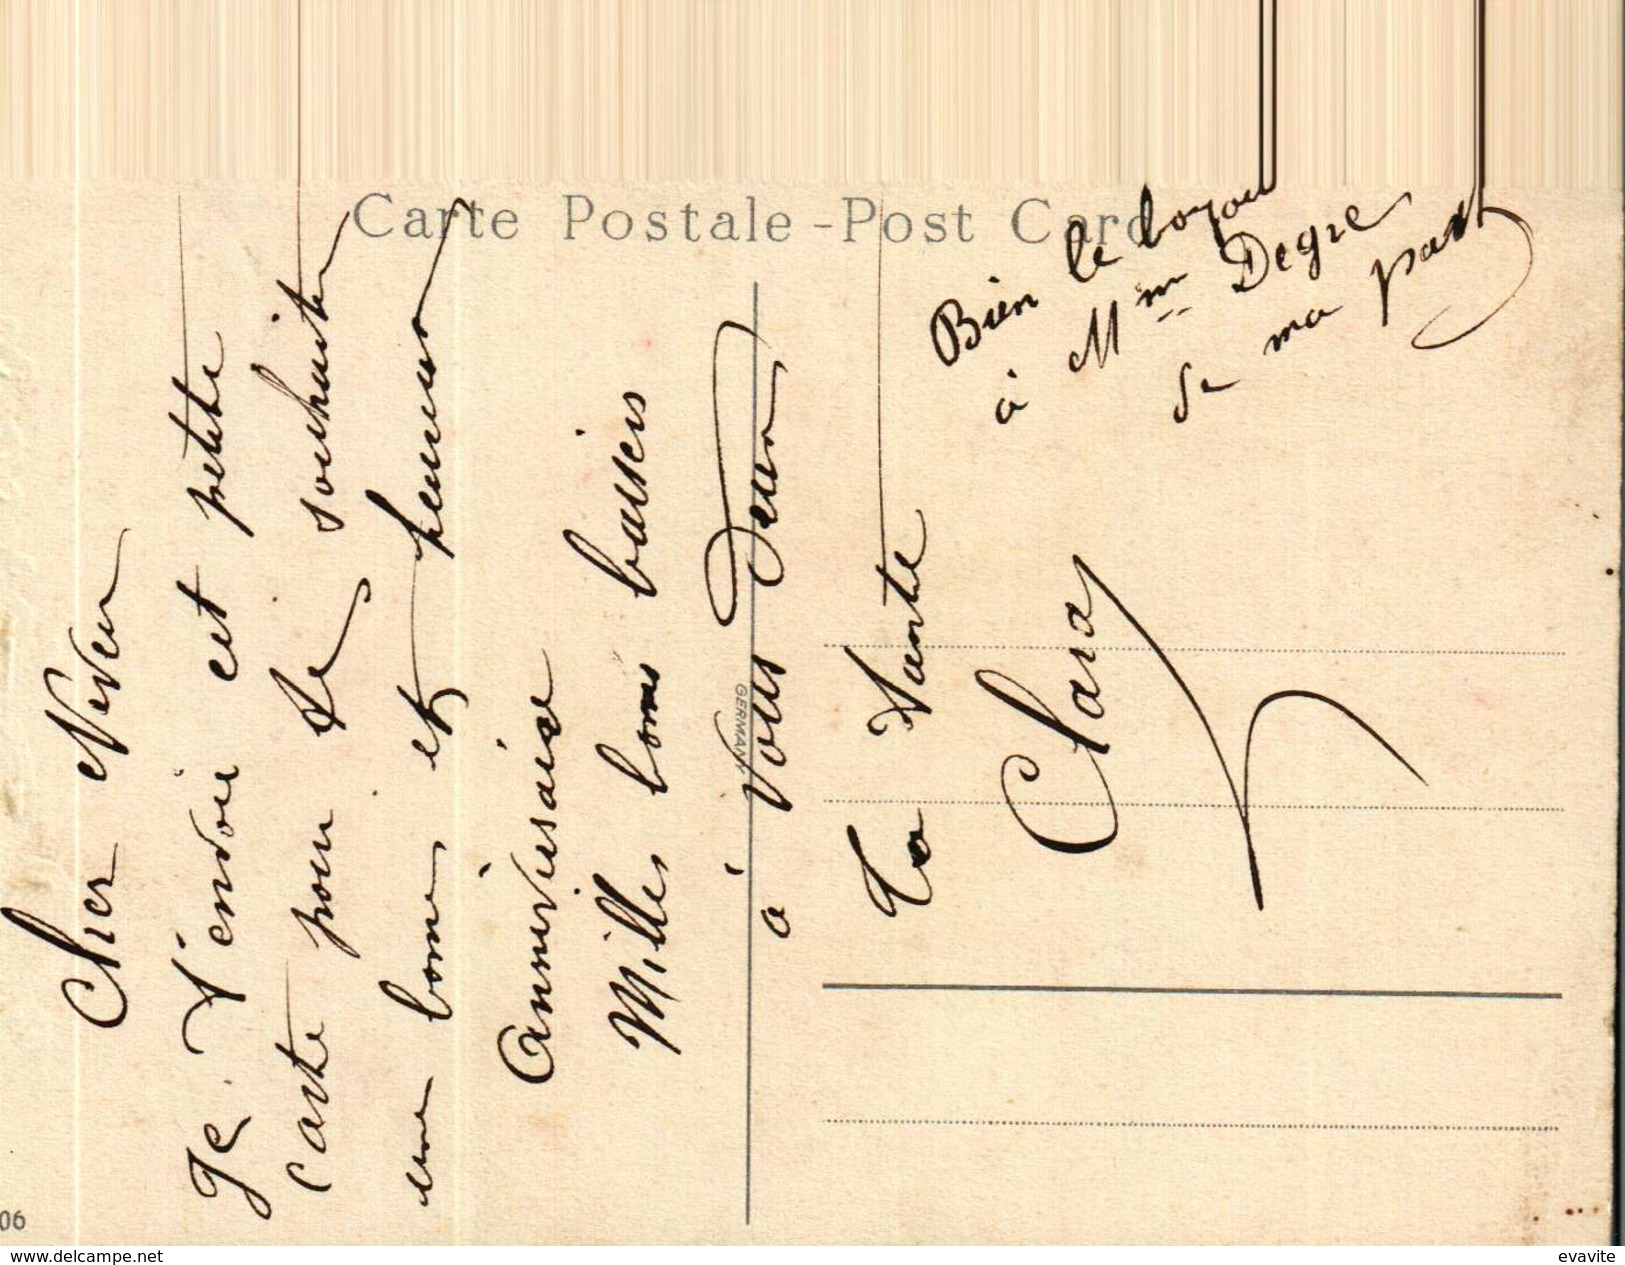 Carte Postale - Post Card
Cher Neveu
Je t'envoie cet petite
carte pour te souhaiter
une bonne et heureux
anniversaire
Milles bons baisers
à vous deux
Ta Tante
Clara
Bien le bonjour
à Mme Degre
de ma part
GERMANY
06
www.delcampe.net
evavite